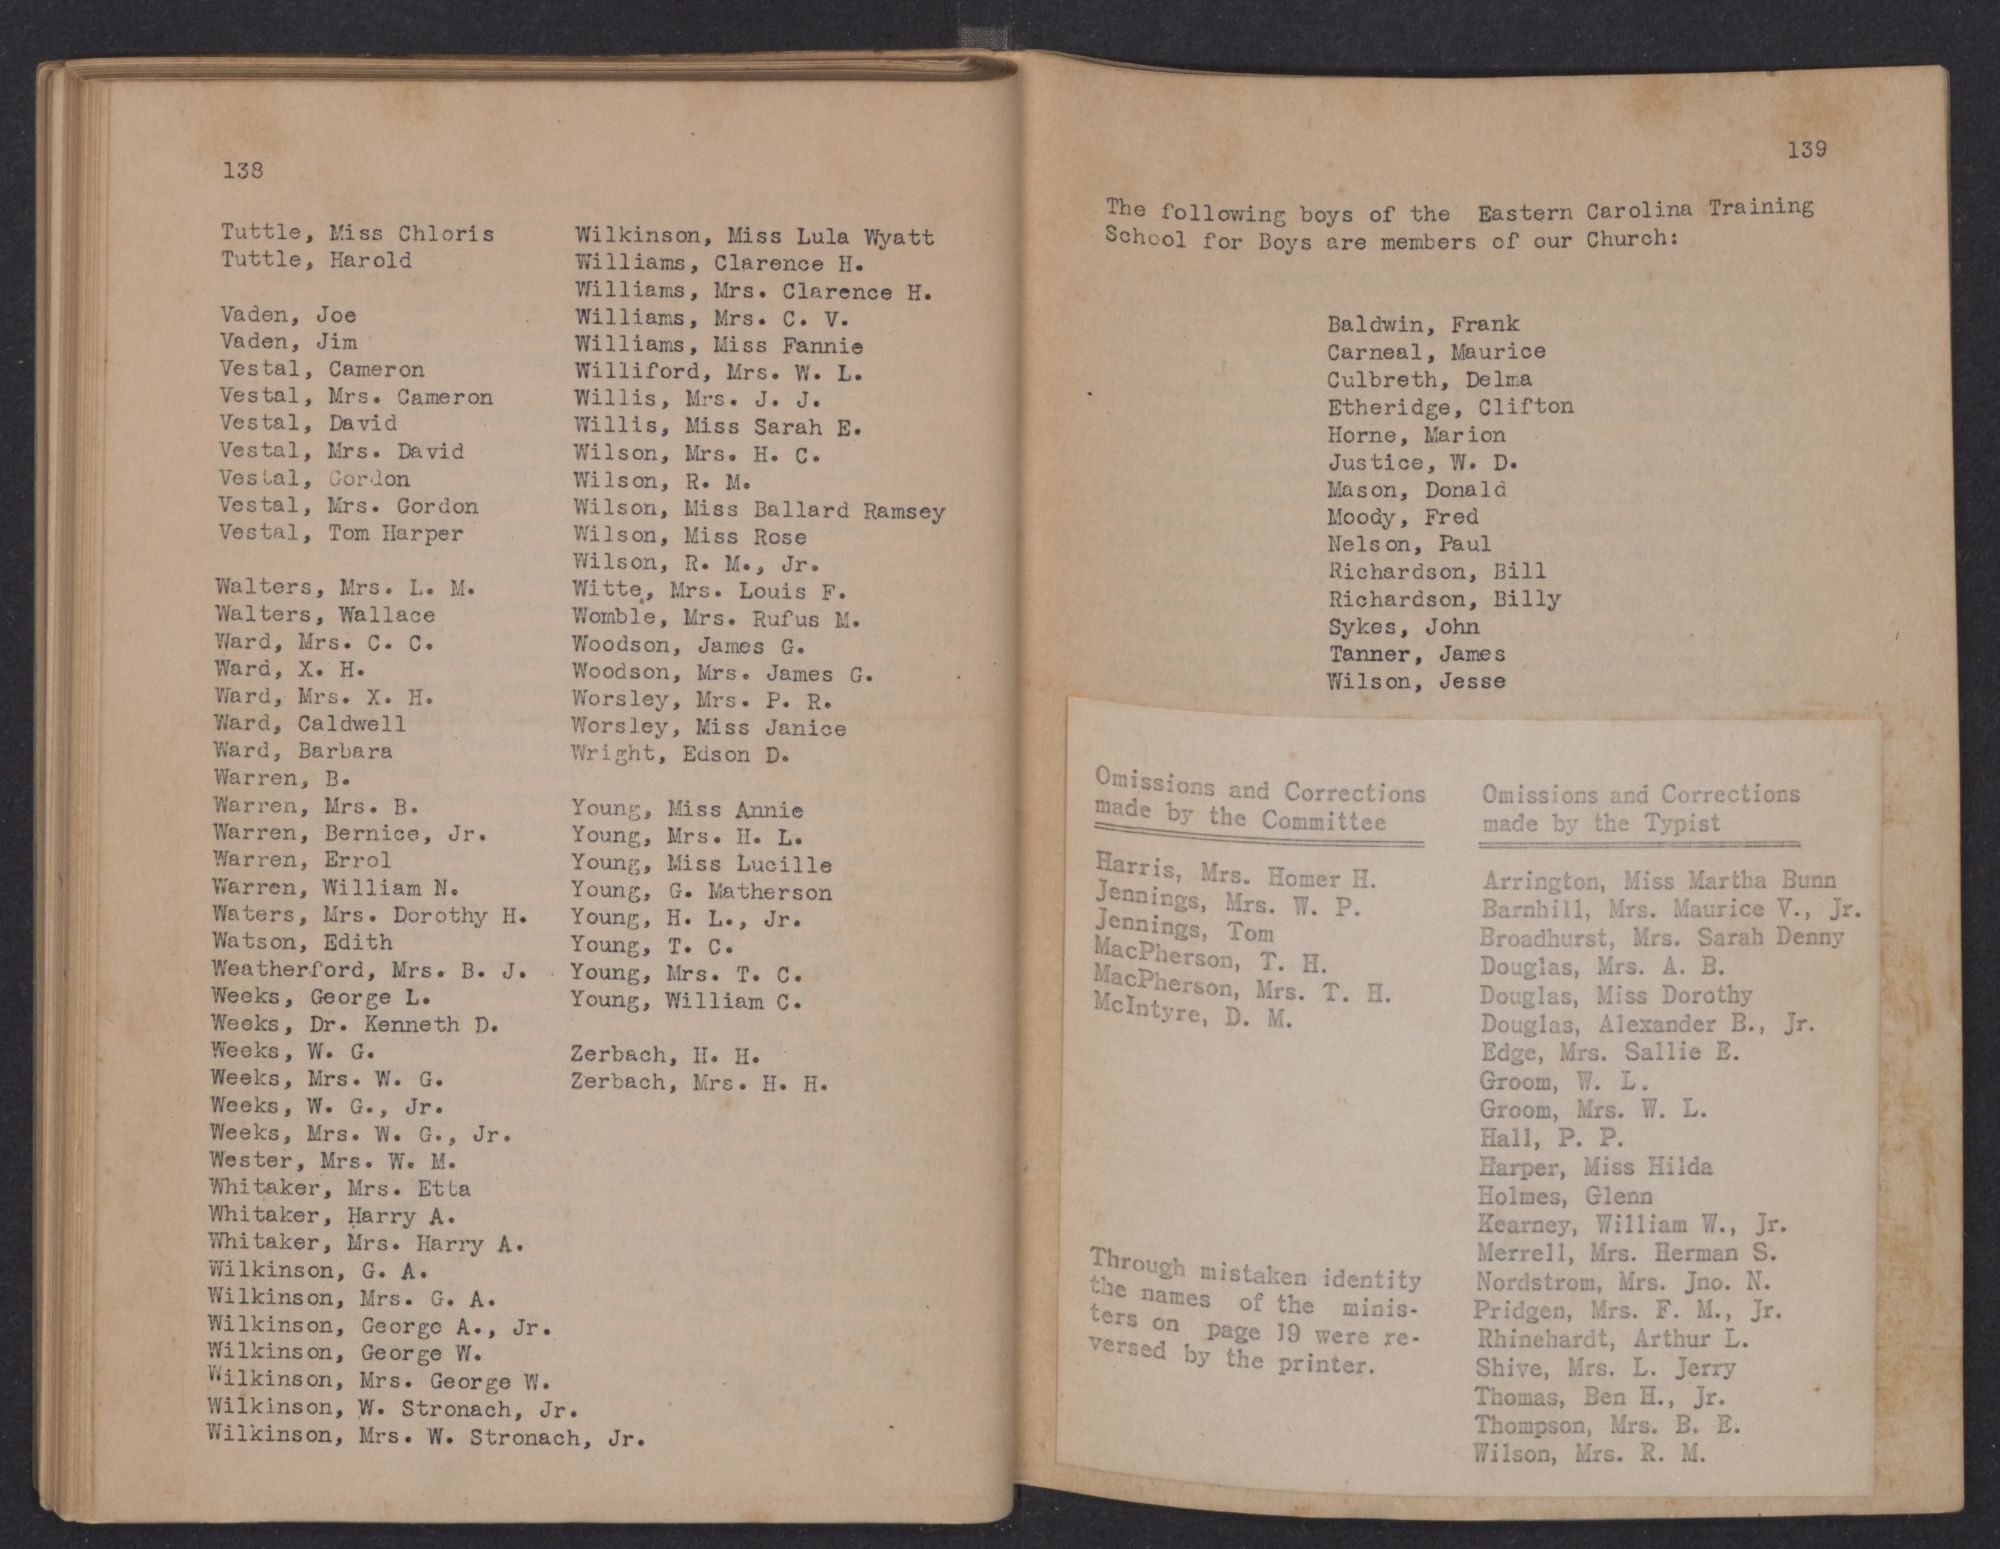 138
Tuttle, Miss Chloris
Tuttle, Harold
Vaden, Joe
Vaden, Jim
Vestal, Cameron
Vestal, Mrs. Cameron
Vestal, David
Vestal, Mrs. David
Vestal, Gordon
Vestal, Mrs. Gordon
Vestal, Tom Harper
Walters, Mrs. L. M.
Walters, Wallace
Ward, Mrs. C. C.
Ward, X. H.
Ward, Mrs. X. H.
Ward, Caldwell
Ward, Barbara
Warren, B.
Warren, Mrs. B.
Warren, Bernice, Jr.
Warren, Errol
Warren, William N.
Waters, Mrs. Dorothy H.
Watson, Edith
Weatherford, Mrs. B. J.
Weeks, George L.
Weeks, Dr. Kenneth D.
Weeks, W. G.
Weeks, Mrs. W. G.
Weeks, W. G., Jr.
Weeks, Mrs. W. G., Jr.
Wester, Mrs. W. M.
Whitaker, Mrs. Etta
Whitaker, Harry A.
Whitaker, Mrs. Harry A.
Wilkinson, G. A.
Wilkinson, Mrs. G. A.
Wilkinson, George A., Jr.
Wilkinson, George W.
Wilkinson, Mrs. George W.
Wilkinson, W. Stronach, Jr.
Wilkinson, Mrs. W. Stronach, Jr.
Wilkinson, Miss Lula Wyatt
Williams, Clarence H.
Williams, Mrs. Clarence H.
Williams, Mrs. C. V.
Williams, Miss Fannie
Williford, Mrs. W. L.
Willis, Mrs. J. J.
Willis, Miss Sarah E.
Wilson, Mrs. H. C.
Wilson, R. M.
Wilson, Miss Ballard Ramsey
Wilson, Miss Rose
Wilson, R. M., Jr.
Witte, Mrs. Louis F.
Womble, Mrs. Rufus M.
Woodson, James G.
Woodson, Mrs. James G.
Worsley, Mrs. P. R.
Worsley, Miss Janice
Wright, Edson D.
Young, Miss Annie
Young, Mrs. H. L.
Young, Miss Lucille
Young, G. Matherson
Young, H. L., Jr.
Young, T. C.
Young, Mrs. T. C.
Young, William C.
Zerbach, H. H.
Zerbach, Mrs. H. H.
139
The following boys of the Eastern Carolina Training
School for Boys are members of our Church:
Baldwin, Frank
Carneal, Maurice
Culbreth, Delma
Etheridge, Clifton
Horne, Marion
Justice, W. D.
Mason, Donald
Moody, Fred
Nelson, Paul
Richardson, Bill
Richardson, Billy
Sykes, John
Tanner, James
Wilson, Jesse
Omissions and Corrections
made by the Committee
Harris, Mrs. Homer H.
Jennings, Mrs. W. P.
Jennings, Tom
MacPherson, T. H.
MacPherson, Mrs. T. H.
McIntyre, D. M.
Through mistaken identity
the names of the minis-
ters on page 19 were re-
versed by the printer.
Omissions and Corrections
made by the Typist
Arrington, Miss Martha Bunn
Barnhill, Mrs. Maurice V., Jr.
Broadhurst, Mrs. Sarah Denny
Douglas, Mrs. A. B.
Douglas, Miss Dorothy
Douglas, Alexander B., Jr.
Edge, Mrs. Sallie E.
Groom, W. L.
Groom, Mrs. W. L.
Hall, P. P.
Harper, Miss Hilda
Holmes, Glenn
Kearney, William W., Jr.
Merrell, Mrs. Herman S.
Nordstrom, Mrs. Jno. N.
Pridgen, Mrs. F. M., Jr.
Rhinehardt, Arthur L.
Shive, Mrs. L. Jerry
Thomas, Ben H., Jr.
Thompson, Mrs. B. E.
Wilson, Mrs. R. M.